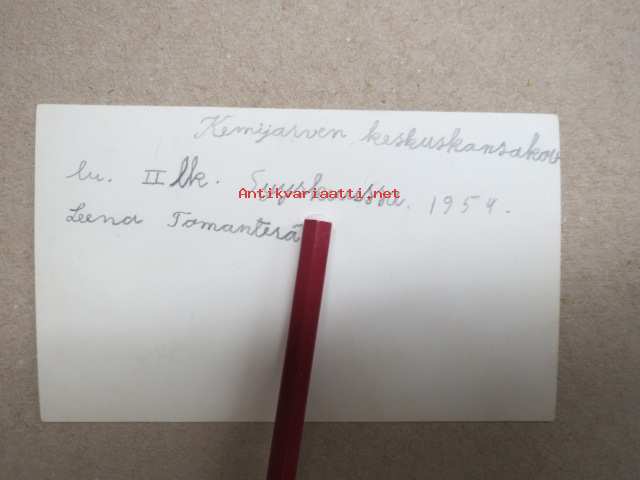 Kemijärven keskuskansakou
lu. II lk. Syyskuussa. 1954.
Antikvariaatti.net
Leena Tomanterä